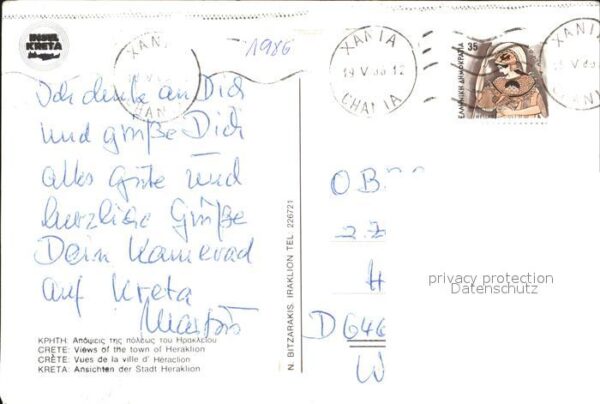 INSEL
KRETA
1986
ΧΑΝΙΑ
ΧΑΝΙΑ
19 V 86 12
CHANIA
ΧΑΝΙΑ
35
ΕΛΛΗΝΙΚΗ ΔΗΜΟΚΡΑΤΙΑ
Ich denke an Dich
und grüße Dich
alles Gute und
herzliche Grüße
Dein Kamerad
auf Kreta
ΚΡΗΤΗ: Απόψεις της πόλεως του Ηρακλείου
CRETE: Views of the town of Heraklion
CRÈTE: Vues de la ville d' Héraclion
KRETA: Ansichten der Stadt Heraklion
N. BITZARAKIS, IRAKLION TEL. 226721
OB
2. Z
H
D 646
W
privacy protection
Datenschutz